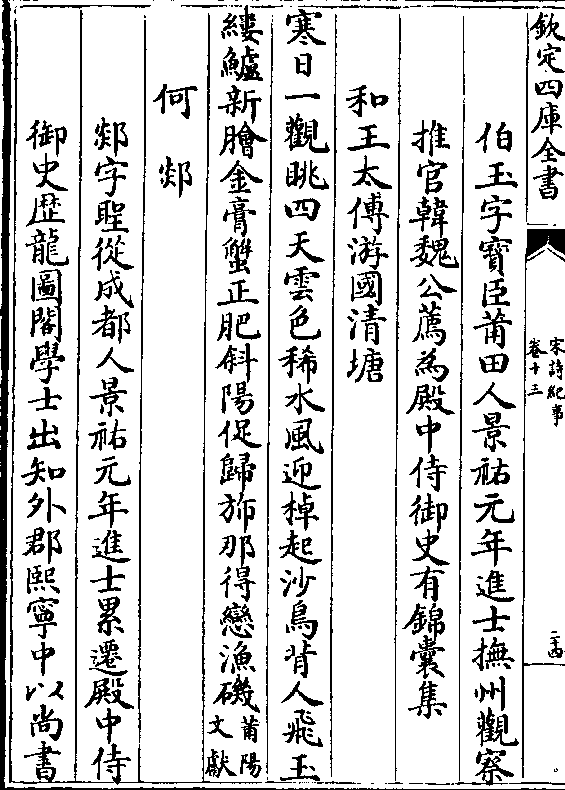 欽定四庫全書
宋詩紀事
卷十三
二十四
伯玉字寶臣莆田人景祐元年進士撫州觀察
推官韓魏公薦為殿中侍御史有錦囊集
和王太傅游國清塘
寒日一觀眺四天雲色稀水風迎棹起沙鳥背人飛玉
縷鱸新膾金膏蟹正肥斜陽促歸斾那得戀漁磯莆陽
文獻
何郯
郯字聖從成都人景祐元年進士累遷殿中侍
御史歴龍圖閣學士出知外郡熙寧中以尚書